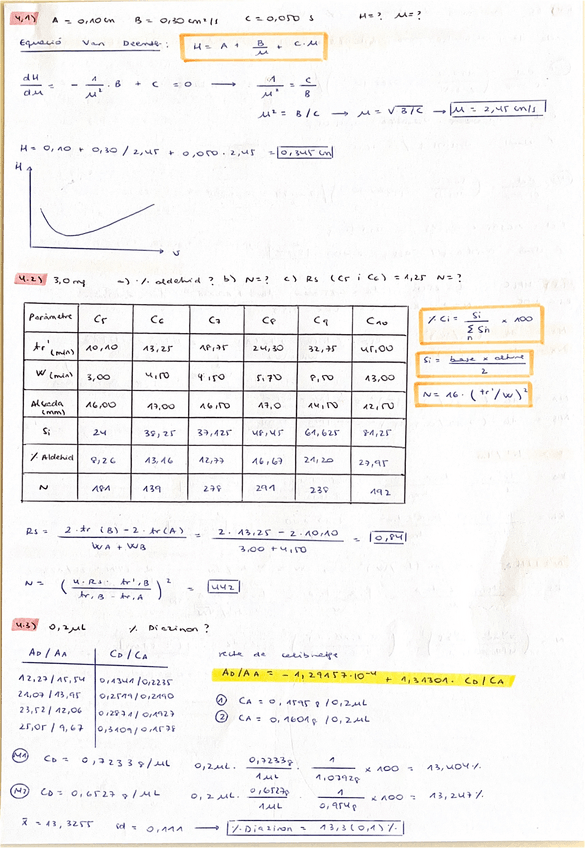 4.1) A = 0,10 cm B = 0,30 cm²/s C = 0,050 s H=? μ=?
Equació Van Deemter: H = A + B/μ + C·μ
dH/dμ = - 1/μ² · B + C = 0 → 1/μ² = C/B
μ² = B/C → μ = √B/C → μ = 2,45 cm/s
H = 0,10 + 0,30 / 2,45 + 0,050 · 2,45 = 0,345 cm
H
4.2) 3,0 mg a) % aldehid? b) N=? c) Rs (C5 i C6) = 1,25 N=?
Paràmetre C5 C6 C7 C8 C9 C10
tr' (min) 10,10 13,25 18,75 24,30 32,75 45,00
W (min) 3,00 4,50 4,50 5,70 8,50 13,00
Alçada (mm) 16,00 17,00 16,50 17,0 14,50 12,50
Si 24 38,25 37,125 48,45 61,625 81,25
% Aldehid 8,26 13,16 12,77 16,67 21,20 27,95
N 181 139 278 291 238 192
% Ci = Si / Σn Sin × 100
Si = base × altura / 2
N = 16 · (tr'/W)²
Rs = 2·tr (B) - 2·tr(A) / WA + WB = 2·13,25 - 2·10,10 / 3,00 + 4,50 = 0,84
N = (4·Rs· tr',B / tr,B - tr,A)² = 442
4.3) 0,2 μL % Diazinon?
AD/AA CD/CA
12,27/15,54 0,1341/0,2235
21,07/13,95 0,2519/0,2190
23,52/12,06 0,2871/0,1927
25,05/9,67 0,3109/0,1578
recta de calibratge
AD/AA = -1,29157·10⁻⁴ + 1,31301· CD/CA
① CA = 0,1595 g/0,2μL
② CA = 0,1601g /0,2μL
M1 CD = 0,7233 g/μL 0,2μL · 0,7233g / 1μL · 1 / 1,0792g × 100 = 13,404%
M2 CD = 0,6527 g/μL 0,2 μL · 0,6527g / 1μL · 1 / 0,954g × 100 = 13,247%
x̄ = 13,3255 sd = 0,111 → % Diazinon = 13,3(0,1)%